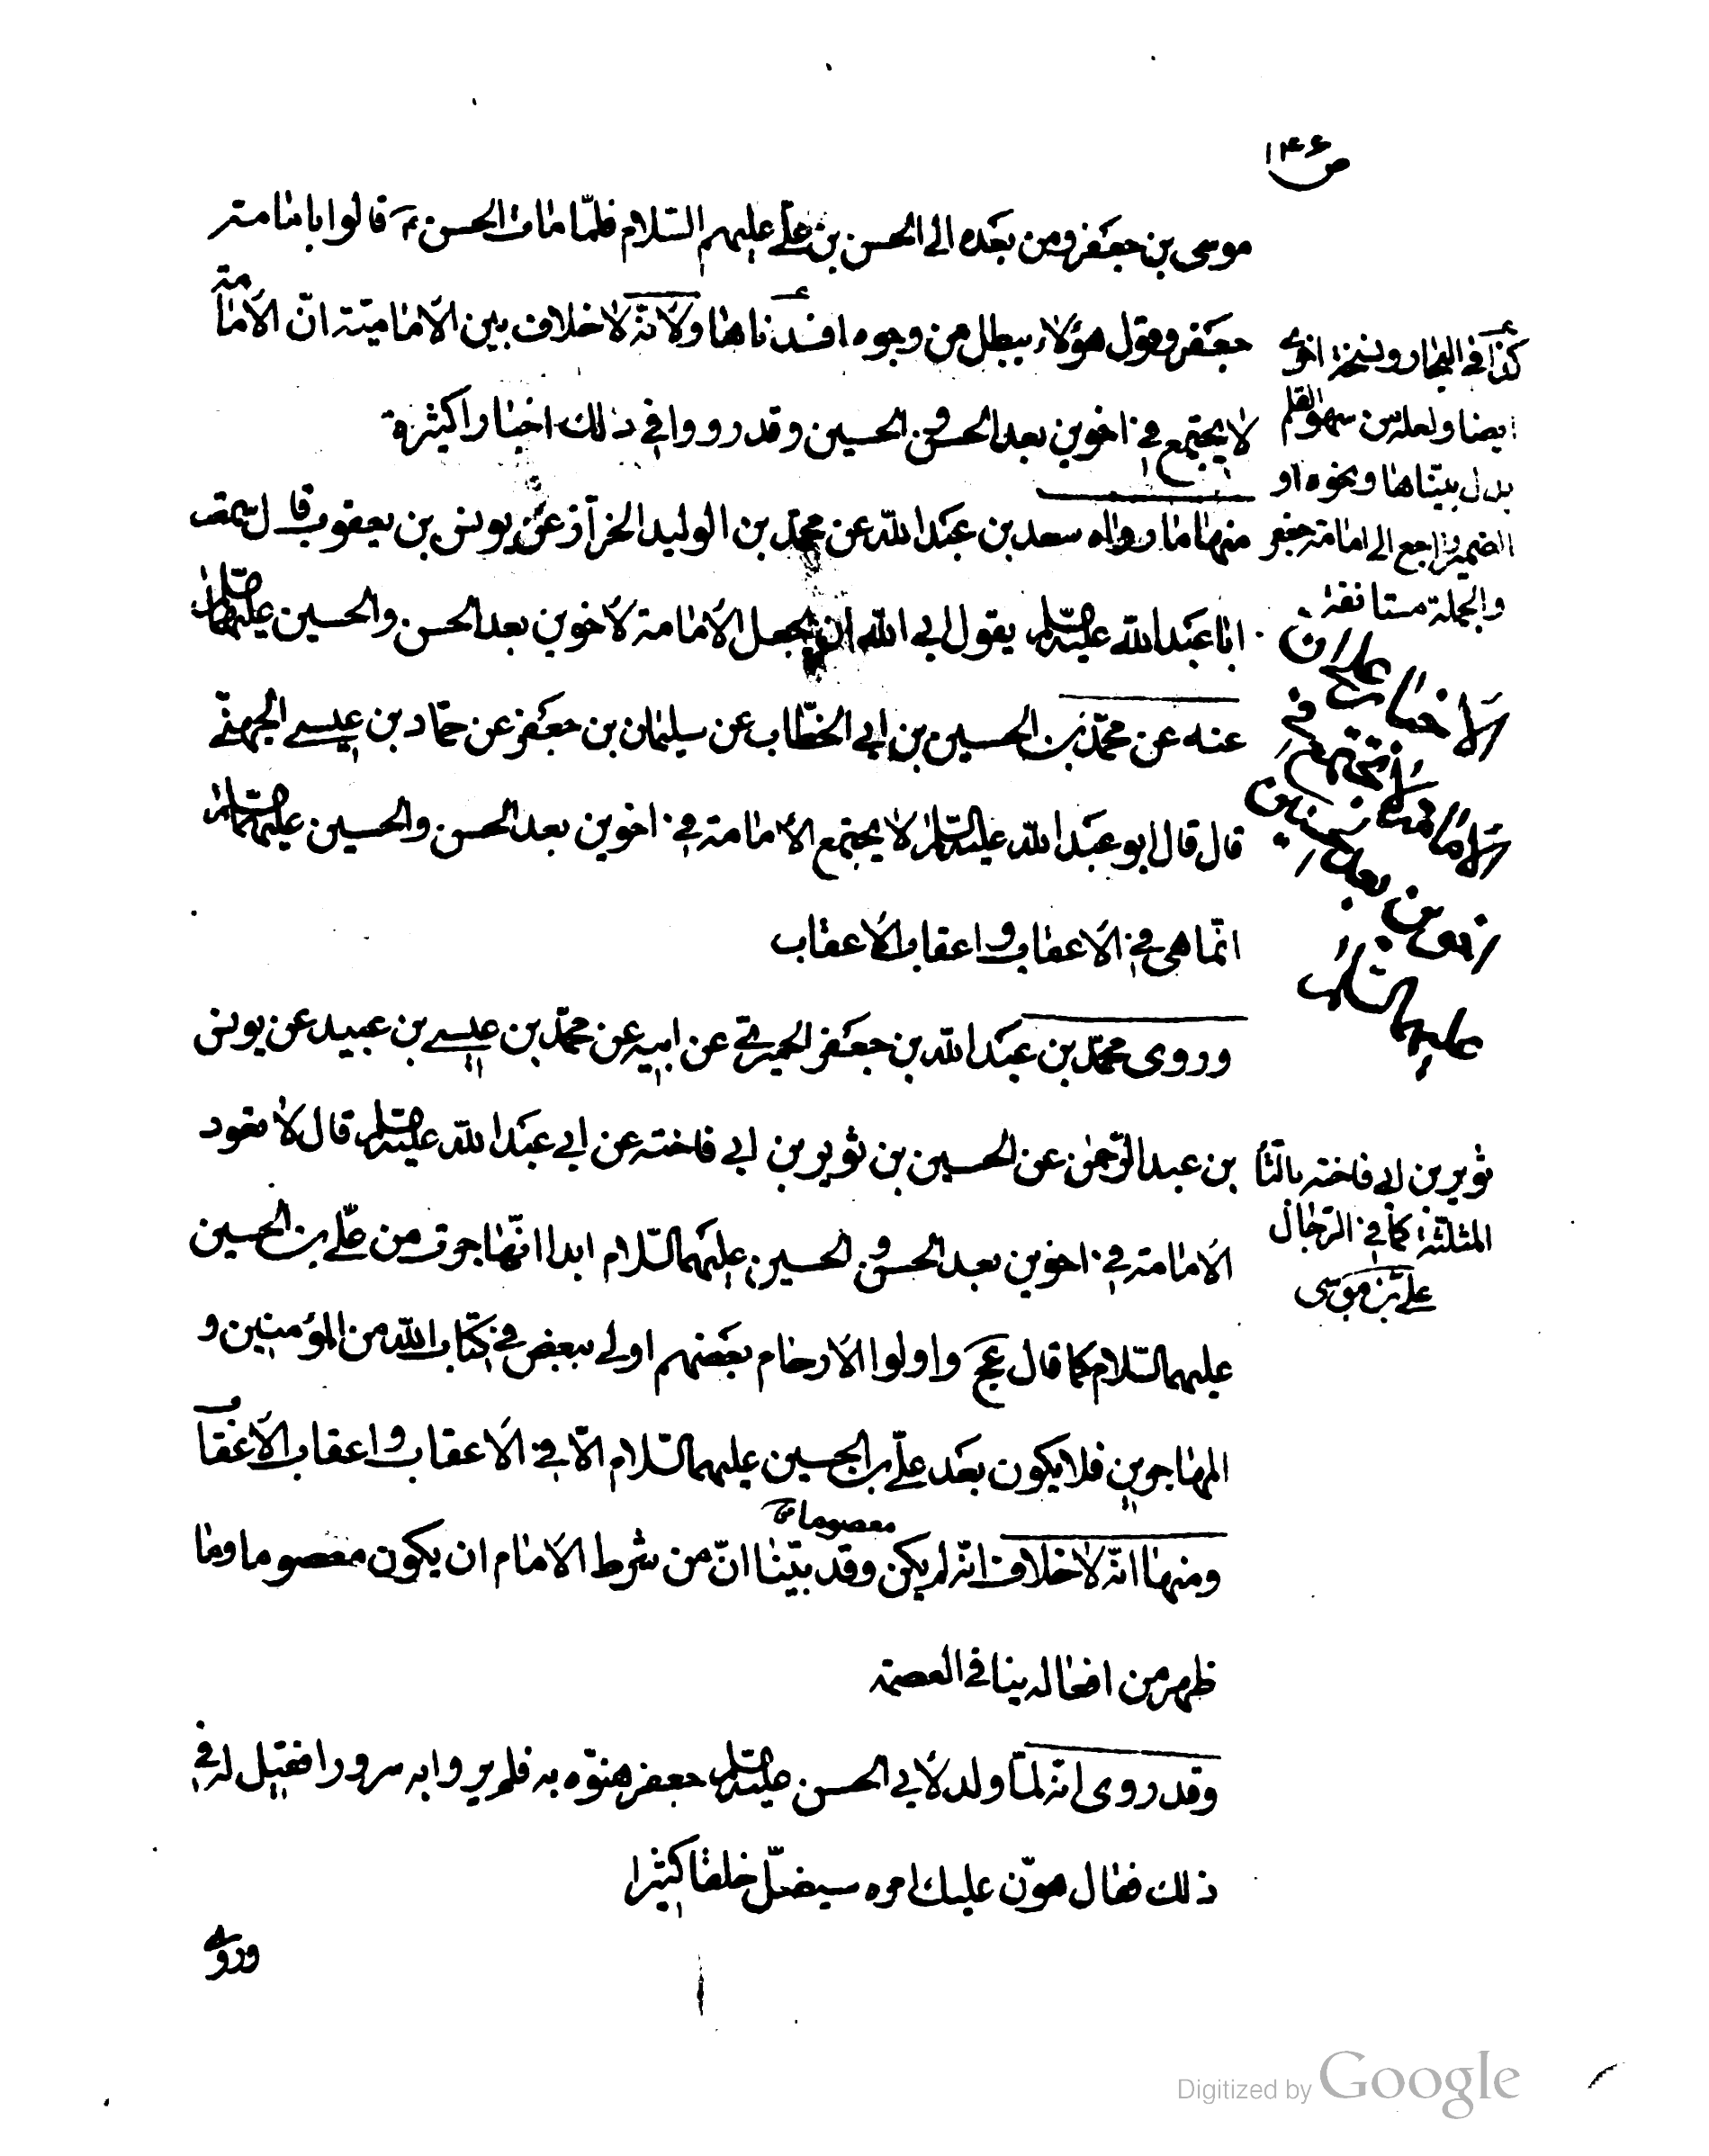 ص ١٤٦
موسى بن جعفر ومن بعده الى الحسن بن على عليهم السلام فلمّا مات الحسن ع قالوا بامامته
جعفر وقول هؤلاء يبطل من وجوه افسدناها ولانّه لا خلاف بين الامامية انّ الامامة
لا يجتمع فى اخوين بعد الحسن و الحسين وقد رووا فى ذلك اخبارا كثيرة
منها ما رواه سعد بن عبد الله عن محمّد بن الوليد الخزّاز عن يونس بن يعقوب قال سمعت
ابا عبد الله عليه السلم يقول ابى الله ان يجعل الامامة لاخوين بعد الحسن والحسين عليهما السلام
عنه عن محمّد بن الحسين بن ابى الخطّاب عن سليمان بن جعفر عن حمّاد بن عيسى الجهنّى
قال قال ابو عبد الله عليه السلم لا يجتمع الامامة فى اخوين بعد الحسن والحسين عليهما السلم
انّما هى فى الاعقاب و اعقاب الاعقاب
وروى محمّد بن عبد الله بن جعفر الحميرى عن ابيه عن محمّد بن عيسى بن عبيد عن يونس
بن عبد الرّحمن عن الحسين بن ثوير بن ابى فاخته عن ابى عبد الله عليه السلم قال لا تعود
الامامة فى اخوين بعد الحسن و الحسين عليهما السّلام ابدا انّها جرت من علّى بن الحسين
عليهما السّلام كما قال عج واولوا الارحام بعضهم اولى ببعض فى كتاب الله من المؤمنين و
المهاجرين فلا يكون بعد علّى بن الحسين عليهما السّلام الّا فى الاعقاب و اعقاب الاعقاب
معصوما
ومنها انّه لا خلاف انّه لم يكن وقد بيّنا انّ من شرط الامام ان يكون معصوما وما
ظهر من افعاله ينافى العصمة
وقد روى انّه لمّا ولد لابى الحسن عليه السلم جعفر هنّوه به فلم يروا به سرورا فقيل له فى
ذلك فقال هوّن عليك امره سيضلّ خلقا كثيرا
وروى
كذا فى البحار ونسخة اخرى
ايضا ولعله من سهو القلم
بدل بيّناها ونحوه او
الضمير راجع الى امامة جعفر
والجملة مستانفة
الاخبار على ان
الامامة لا تجتمع فى
اخوين بعد الحسنين
عليهما السلام
ثوير بن ابى فاخته بالثا
المثلثة كما فى الرّجال
على بن موسى
Digitized by Google